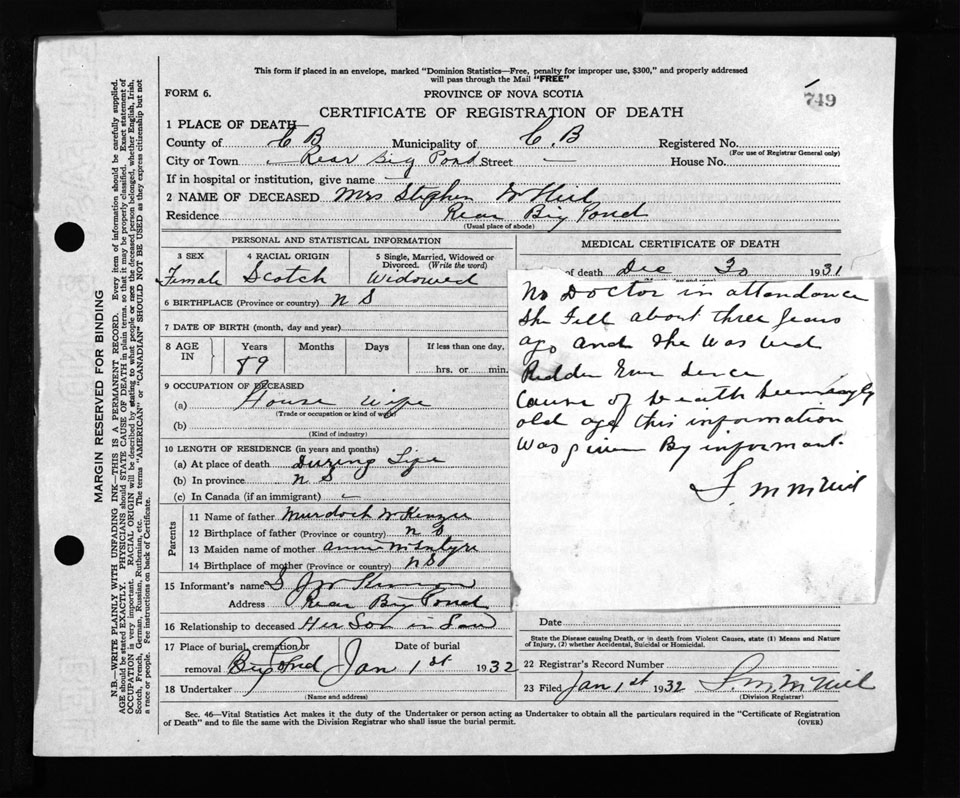 This form if placed in an envelope, marked "Dominion Statistics—Free, penalty for improper use, $300," and properly addressed
will pass through the Mail "FREE"
FORM 6.
PROVINCE OF NOVA SCOTIA
749
CERTIFICATE OF REGISTRATION OF DEATH
1 PLACE OF DEATH—
County of C B Municipality of C. B Registered No.
(For use of Registrar General only)
City or Town Rear Big Pond Street - House No.
If in hospital or institution, give name —
2 NAME OF DECEASED Mrs Stephen McNeil
Residence Rear Big Pond
(Usual place of abode)
PERSONAL AND STATISTICAL INFORMATION
3 SEX 4 RACIAL ORIGIN 5 Single, Married, Widowed or Divorced. (Write the word)
Female Scotch Widowed
6 BIRTHPLACE (Province or country) N S
7 DATE OF BIRTH (month, day and year)
8 AGE IN Years Months Days If less than one day,
89 hrs. or min.
9 OCCUPATION OF DECEASED
(a) House wife
(Trade or occupation or kind of work)
(b)
(Kind of industry)
10 LENGTH OF RESIDENCE (in years and months)
(a) At place of death During Life
(b) In province N S
(c) In Canada (if an immigrant) —
Parents
11 Name of father Murdoch McKenzie
12 Birthplace of father (Province or country) N S
13 Maiden name of mother Annie McIntyre
14 Birthplace of mother (Province or country) N S
15 Informant's name S J
Address Rear Big Pond
16 Relationship to deceased Her Son in Law
17 Place of burial, cremation or
removal Big Pond Jan 1st 1932
18 Undertaker
(Name and address)
MEDICAL CERTIFICATE OF DEATH
of death Dec 30 1931
No Doctor in attendance
She Fell about three years
ago and she was bed
Ridden Ever Sence
Cause of Death Seemingly
old age this information
was given By informant.
S M McNeil
Date
State the Disease causing Death, or in death from Violent Causes, state (1) Means and Nature
of Injury, (2) whether Accidental, Suicidal or Homicidal.
22 Registrar's Record Number
23 Filed Jan 1st 1932 S. M. McNeil
(Division Registrar)
Sec. 46—Vital Statistics Act makes it the duty of the Undertaker or person acting as Undertaker to obtain all the particulars required in the "Certificate of Registration
of Death" and to file the same with the Division Registrar who shall issue the burial permit.
(OVER)
MARGIN RESERVED FOR BINDING
N.B.—WRITE PLAINLY WITH UNFADING INK—THIS IS A PERMANENT RECORD. Every item of information should be carefully supplied.
AGE should be stated EXACTLY. PHYSICIANS should STATE CAUSE OF DEATH in plain terms, so that it may be properly classified. Exact statement of
OCCUPATION is very important. RACIAL ORIGIN will be described by stating to what people or race the deceased person belonged, whether English, Irish,
Scotch, French, German, Russian, Ruthenian, etc. The terms "AMERICAN" or "CANADIAN" SHOULD NOT BE USED as they express citizenship but not
a race or people. See instructions on back of Certificate.